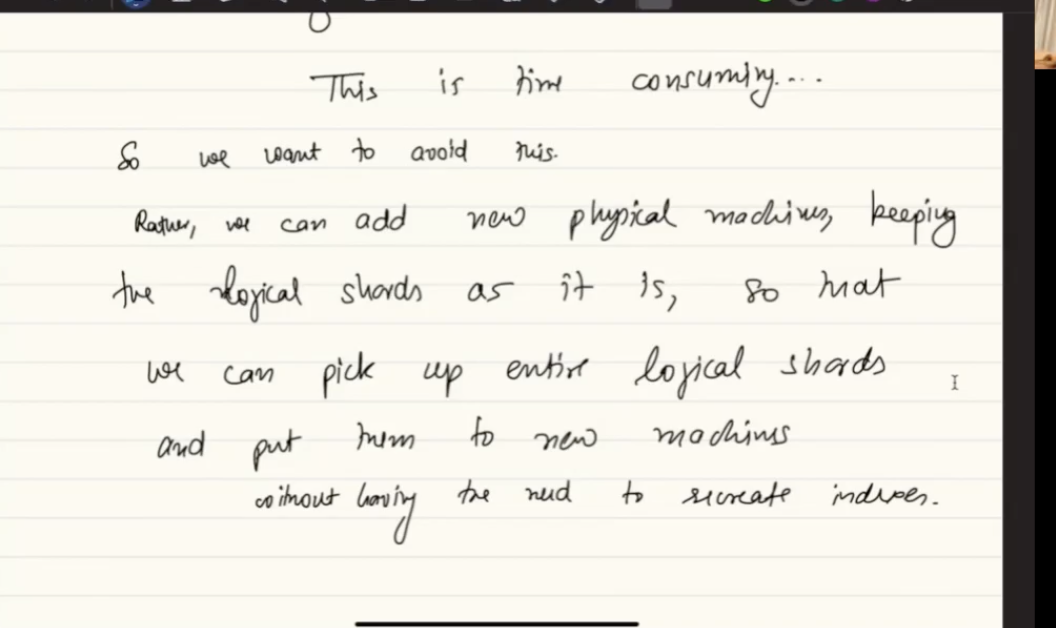 This is time consuming....
So we want to avoid this.
Rather, we can add new physical machines, keeping
the logical shards as it is, so that
we can pick up entire logical shards
and put them to new machines
without having the need to recreate indexes.